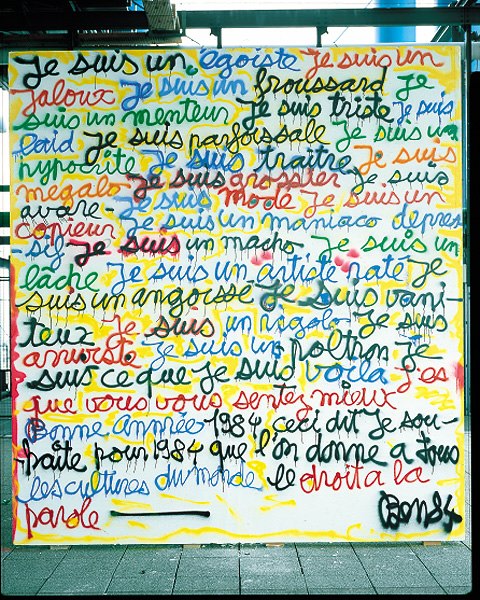 Je suis un égoïste Je suis un
jaloux Je suis un froussard Je
suis un menteur Je suis triste Je suis
laid Je suis parfois sale Je suis un
hypocrite Je suis traitre Je suis
megalo Je suis grossier Je suis
avare - Je suis mode Je suis un
copieur Je suis un maniaco depres
-sif Je suis un macho Je suis un
lâche Je suis un artiste raté Je
suis un angoisse Je suis vani-
teux Je suis un rigolo Je suis
arriviste Je suis un poltron Je
suis ce que Je suis voila J'es
que vous vous sentez mieux
Bonne année 1984 ceci dit Je sou-
haite pour 1984 que l'on donne a tous
les cultures du monde le droit a la
parole
Ben 84